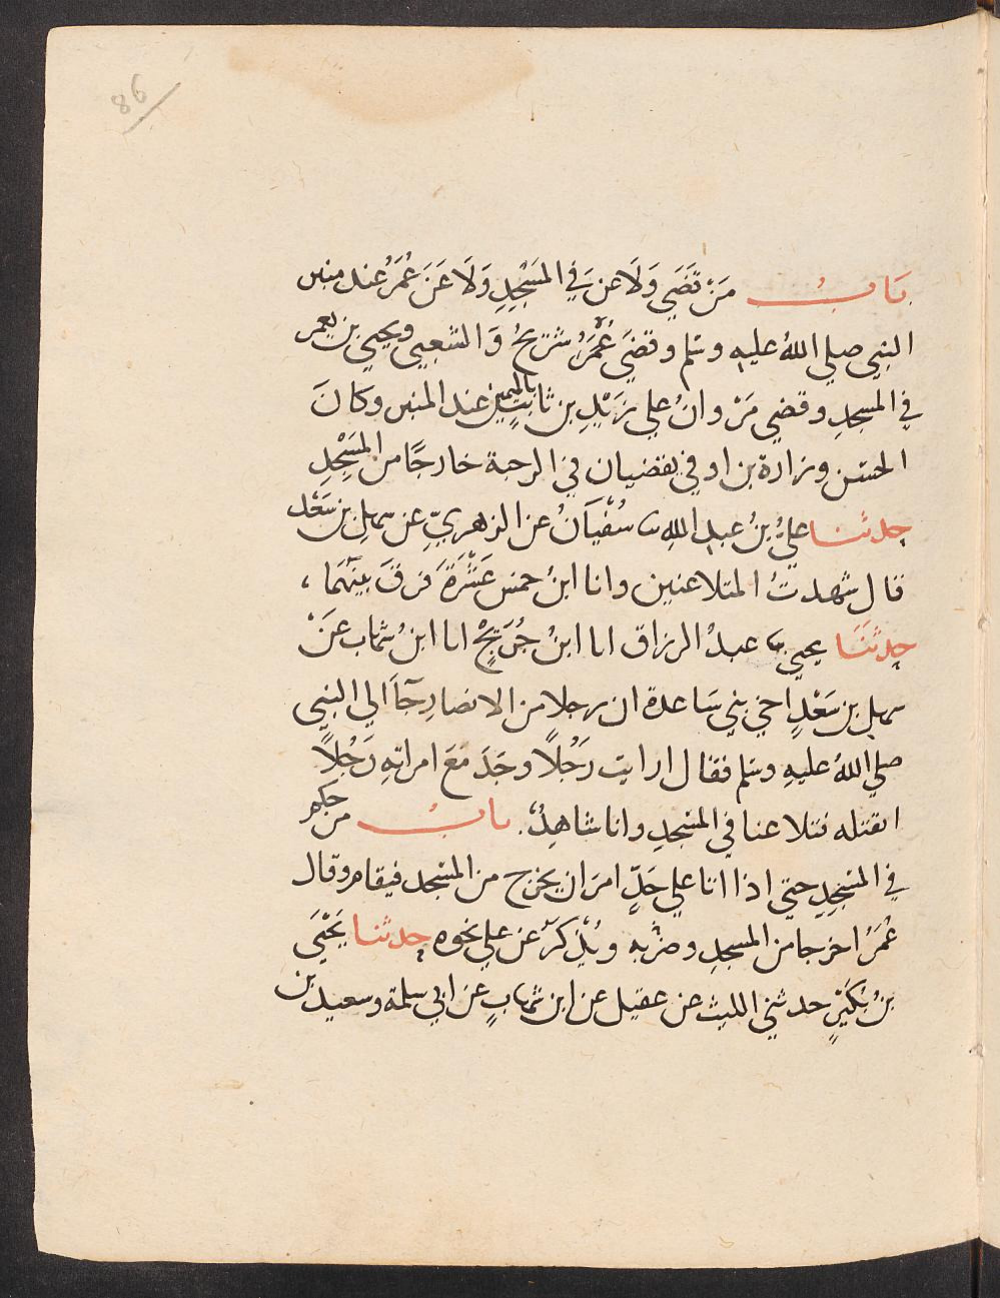 86
بَابُ مَنْ قَضَي وَلَاعَنَ فِي المَسْجِدِ وَلَاعَنَ عُمَرُ عند منبر
النبي صلي اللهُ عليهِ وسَلم وقضَي عُمَرُ شُرَيحُ وَالشعبي ويحيي بن يعمر
في المسجدِ وقضي مَرْوانُ علي زَيْدِ بن ثابتٍ باليمين عند المنبر وكانَ
الحسَن وزرارة بن اوفي يقضيان في الرحبة خارجًا من المَسْجِدِ
حدثنا عَليُّ بنُ عبدِ اللهِ نا سُفْيَانُ عن الزهريِّ عن سهلِ بن سَعْد
قال شهدتُ المتلاعنين وانا ابنُ خمس عَشْرَةَ فرقَ بينَهما ،
حدثنَا يحيي نا عبدُ الرزاق انا ابنُ جُرَيْجٍ انا ابنُ شهاب عَنْ
سهل بن سَعْدٍ اخي بني سَاعدة ان رجلا من الانصارِ جآَ الي النبي
صلي اللهُ عليهِ وسَلم فقال ارايت رَجُلاً وجَدَ مَعَ امراتهِ رَجُلاً
ايقتله فتلاعنا في المسْجدِ وانا شاهِدٌ. بابُ من حكم
في المسْجِدِ حتي اذا اتا علي حَدٍّ امرَ ان يخرج من المسْجد فيقام وقال
عُمَرُ اخرجا من المسجدِ وضرْبه ويُذكَرُ عن علي نحوه حدثنا يَحْيَي
بنُ بُكَيْرٍ حدثني الليث عن عقيل عن ابن شهابٍ عن ابي سلمة وسعيد بن